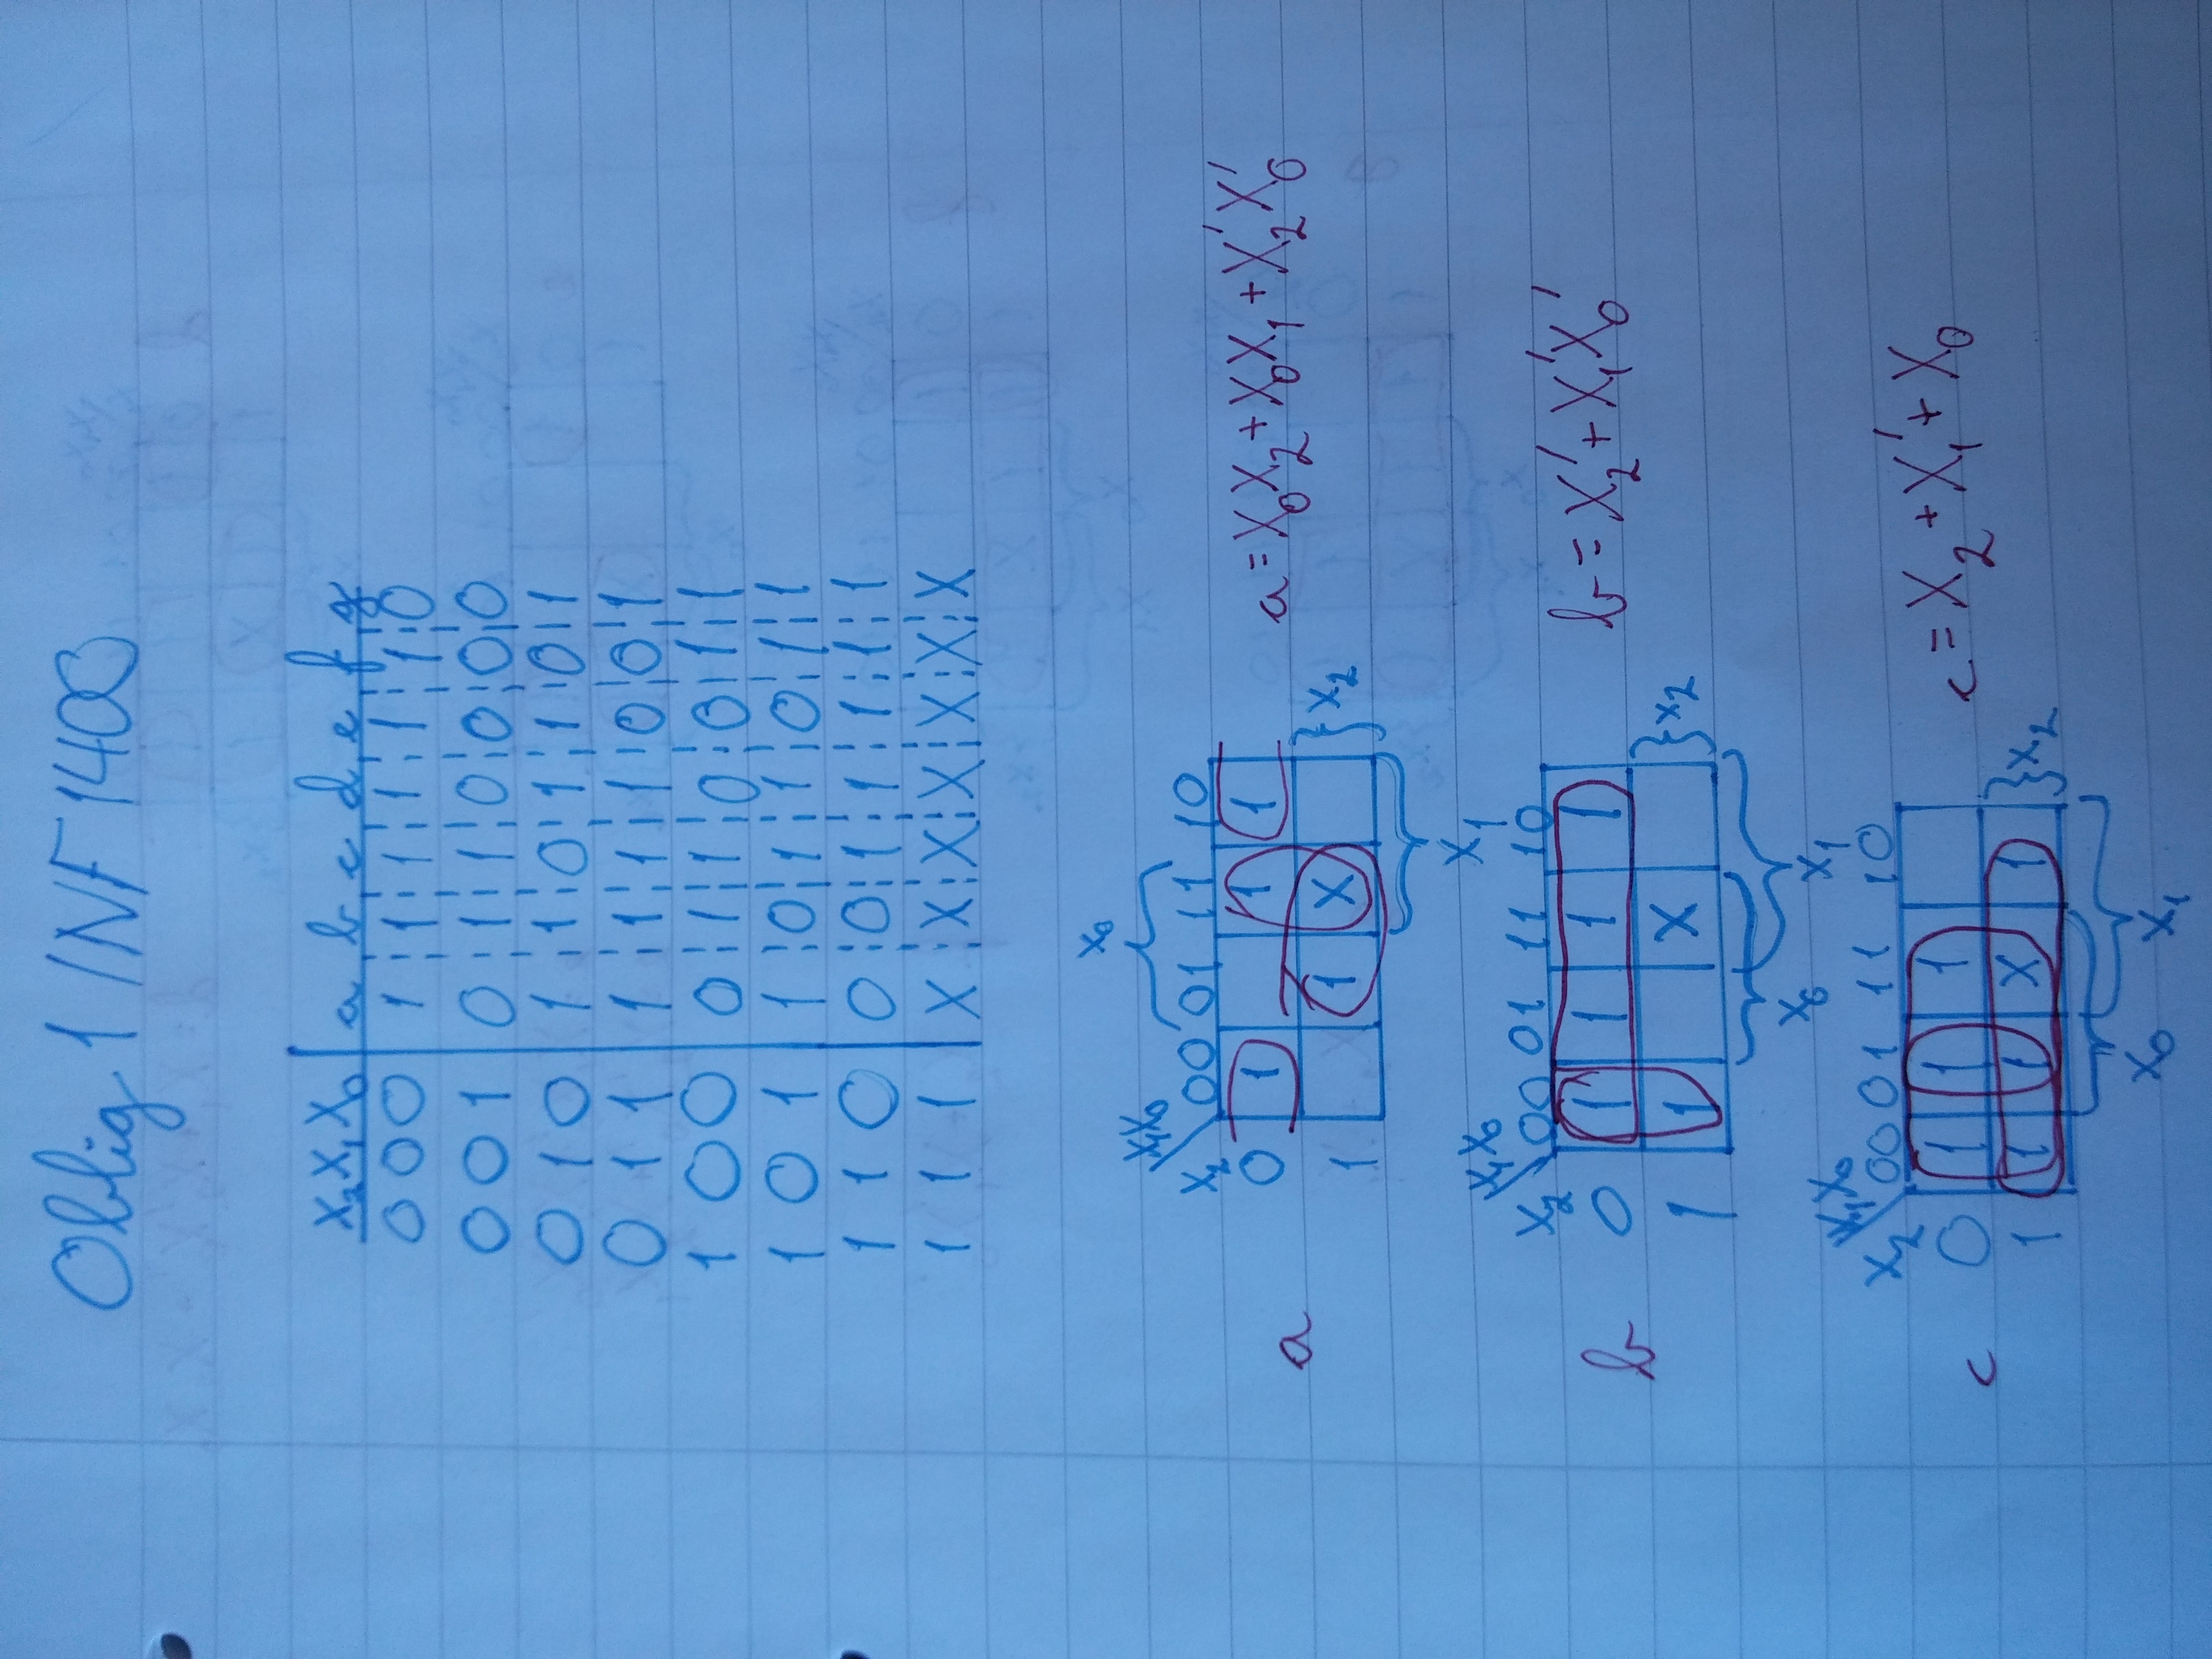 Oblig 1 INF1400
X₂ X₁ X₀ a b c d e f g
0 0 0 1 1 1 1 1 1 0
0 0 1 0 1 1 0 0 0 0
0 1 0 1 1 0 1 1 0 1
0 1 1 1 1 1 1 0 0 1
1 0 0 0 1 1 0 0 1 1
1 0 1 1 0 1 1 0 1 1
1 1 0 0 0 1 1 1 1 1
1 1 1 X X X X X X X
X₀
X₁X₀
X₂ 00 01 11 10
0 1 1 1
a a = X₀X₂ + X₀X₁ + X₂'X₀'
1 1 X X₂
X₁
X₁X₀
X₂ 00 01 11 10
b 0 1 1 1 1 b = X₂' + X₁'X₀'
1 1 X X₂
X₀ X₁
X₁X₀
X₂ 00 01 11 10
c 0 1 1 1 c = X₂ + X₁' + X₀
1 1 1 X 1 X₂
X₀ X₁